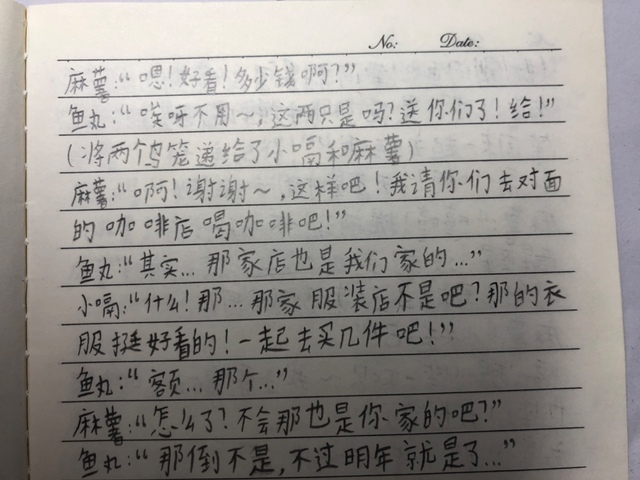 No: Date:
麻薯:“嗯!好看!多少钱啊?”
鱼丸:“唉呀不用~,这两只是吗?送你们了!给!”
(将两个鸟笼递给了小嗝和麻薯)
麻薯:“啊!谢谢~,这样吧!我请你们去对面
的咖啡店喝咖啡吧!”
鱼丸:“其实...那家店也是我们家的...”
小嗝:“什么!那...那家服装店不是吧?那的衣
服挺好看的!一起去买几件吧!”
鱼丸:“额...那个...”
麻薯:“怎么了?不会那也是你家的吧?”
鱼丸:“那倒不是,不过明年就是了...”